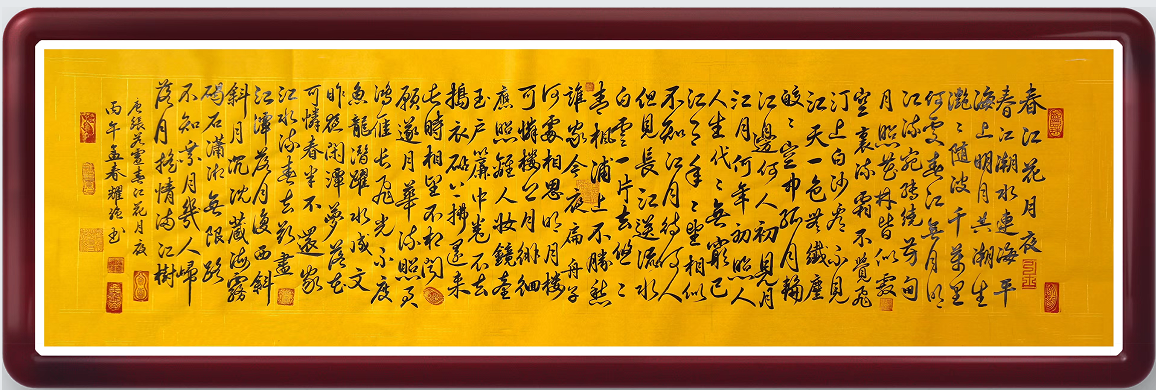 春江花月夜
春江潮水連海平
海上明月共潮生
灔〻隨波千萬里
何處春江無月明
江流宛轉繞芳甸
月照花林皆似霰
空裏流霜不覺飛
汀上白沙看不見
江天一色無纖塵
皎〻空中孤月輪
江邊何人初見月
江月何年初照人
人生代〻無窮已
江月年〻望相似
不知江月待何人
但見長江送流水
白雲一片去悠〻
青楓浦上不勝愁
誰家今夜扁舟子
何處相思明月樓
可憐樓上月徘徊
應照離人妝鏡臺
玉戶簾中卷不去
擣衣砧上拂還來
此時相望不相聞
願逐月華流照君
鴻雁長飛光不度
魚龍潛躍水成文
昨夜閑潭夢落花
可憐春半不還家
江水流春去欲盡
江潭落月復西斜
斜月沉沈藏海霧
碣石瀟湘無限路
不知乘月幾人歸
落月搖情滿江樹
唐張若虛春江花月夜
丙午孟春耀